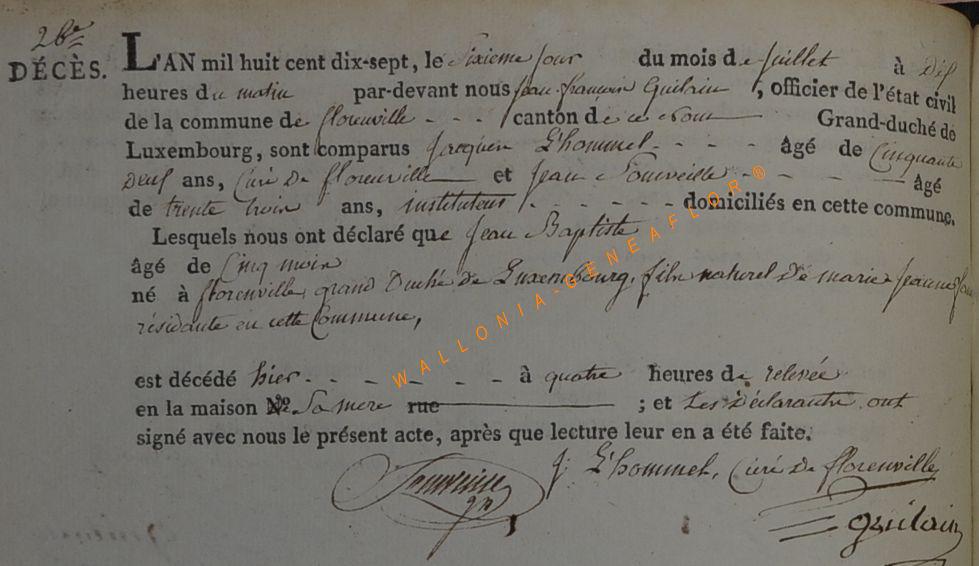 26e
DÉCÈS.
L'AN mil huit cent dix-sept, le Sixieme jour du mois de juillet à dix
heures du matin par-devant nous jean françois Guilain, officier de l'état civil
de la commune de florenville - - - canton de ce nom Grand-duché de
Luxembourg, sont comparus Jacques L'hommel - - - - âgé de Cinquante
neuf ans, Curé de florenville et Jean - - - - âgé
de trente trois ans, instituteur - - - - - - domiciliés en cette commune.
Lesquels nous ont déclaré que Jean Baptiste
âgé de Cinq mois
né à florenville, grand Duché de Luxembourg, fils naturel de marie Jeanne
résidante en cette Commune,
est décédé hier - - - - - - à quatre heures de relevée
en la maison N.º Sa mere rue ; et Les Déclarants ont
signé avec nous le présent acte, après que lecture leur en a été faite.
J: L'hommel, Curé de florenville
guilain
WALLONIA-GENEAFLOR®